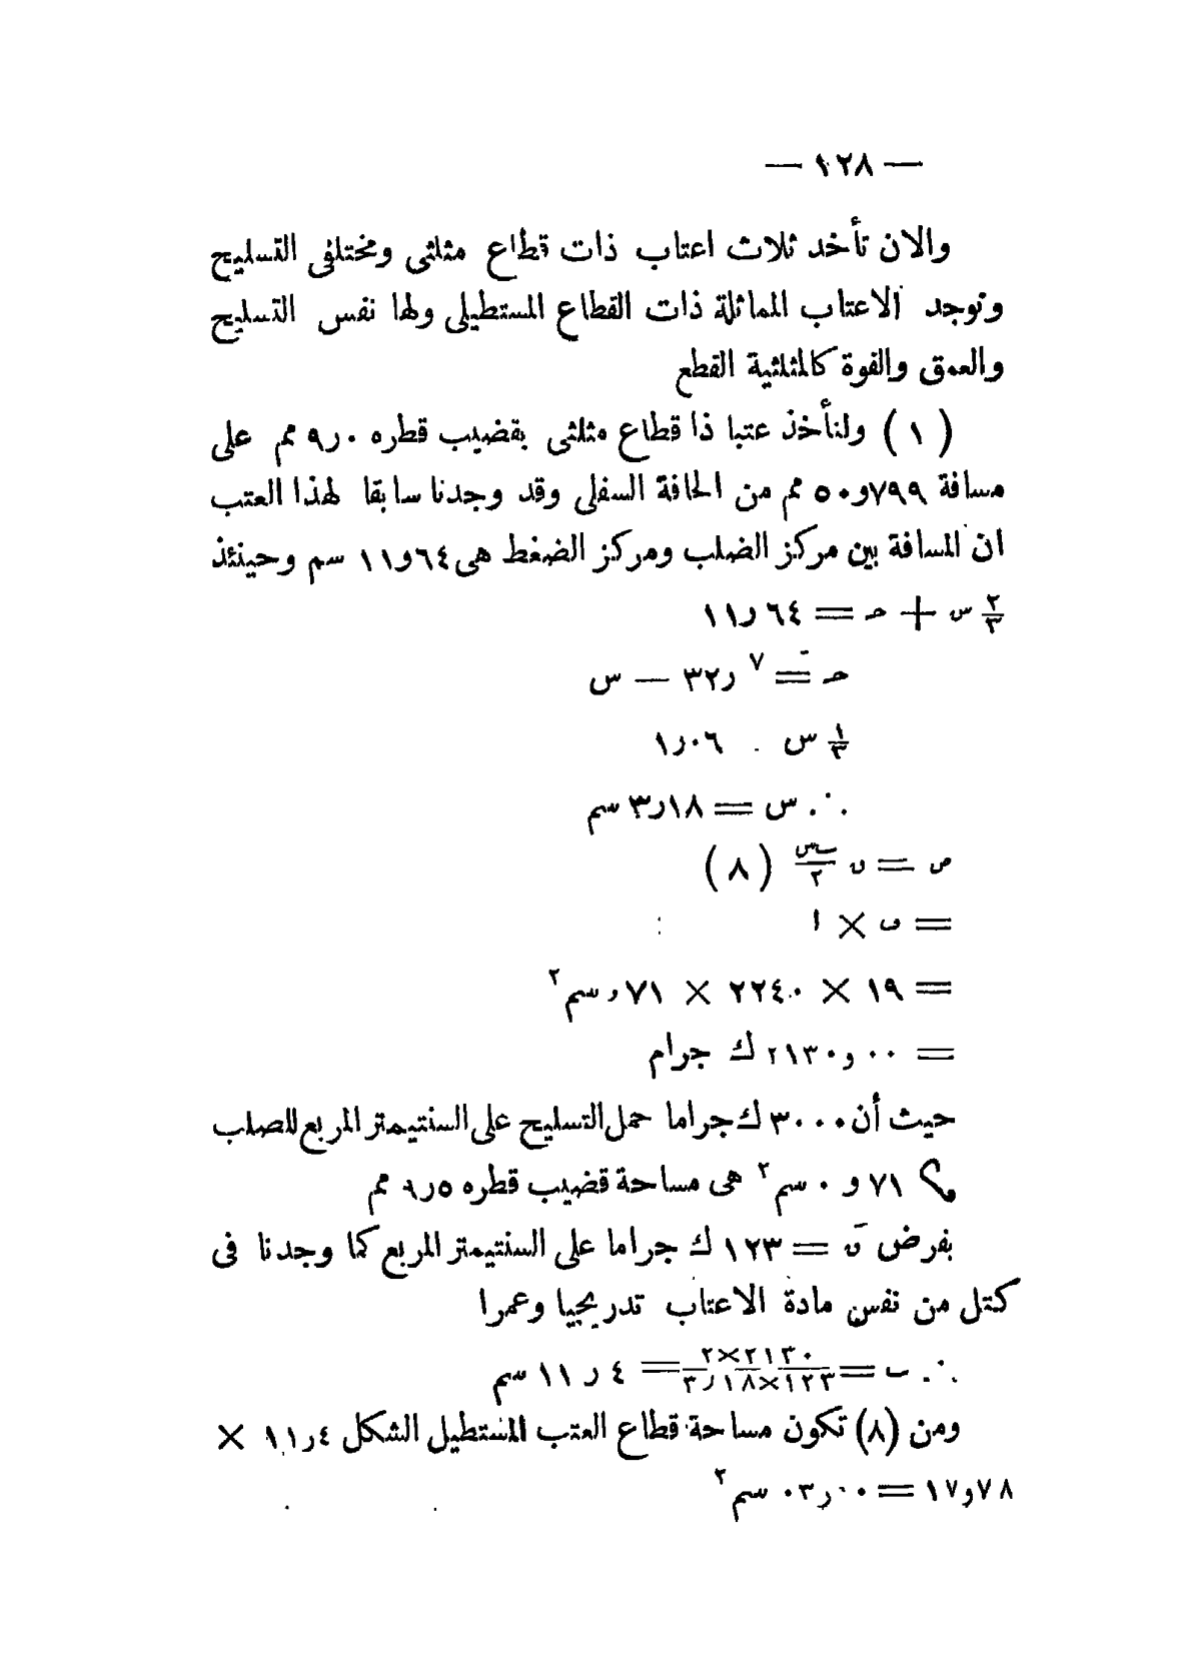 — ١٢٨ —
والان تأخد ثلاث اعتاب ذات قطاع مثلثى ومختلفى التسليح
وتوجد الاعتاب المماثلة ذات القطاع المستطيلى ولها نفس التسليح
والعمق والقوة كالمثلثية القطع
( ١ ) ولنأخذ عتبا ذا قطاع مثلثى بقضيب قطره ٩٫٠ مم على
مسافة ٥٠٫٧٩٩ مم من الحافة السفلى وقد وجدنا سابقا لهذا العتب
ان المسافة بين مركز الضلب ومركز الضغط هى ١١٫٦٤ سم وحينئذ
٢/٣ س + حـ = ١١٫٦٤
حـ = ٧ ٫٣٢ — س
١/٣ س ١٫٠٦
∴ س = ٣٫١٨ سم
ص = ں ٮس/٢ (٨)
= ں × ا
= ١٩ × ٢٢٤٠ × ٧١و سم٢
= ٢١٣٠٫٠٠ ك جرام
حيث أن ٣٠٠٠ ك جراما حمل التسليح على السنتيمتر المربع للصلب
٧١ و ٠ سم٢ هى مساحة قضيب قطره ٩٫٥ مم
بفرض ںَ = ١٢٣ ك جراما على السنتيمتر المربع كما وجدنا فى
كتل من نفس مادة الاعتاب تدريجيا وعمرا
∴ ٮ = ٢×٢١٣٠/٣٫١٨×١٢٣ = ١١٫٤ سم
ومن (٨) تكون مساحة قطاع العتب المستطيل الشكل ١١٫٤ ×
١٧٫٧٨ = ٠٣٫٠٠ سم٢